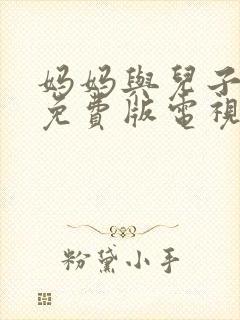 妈妈與兒子
免費版電視
粉黛小手